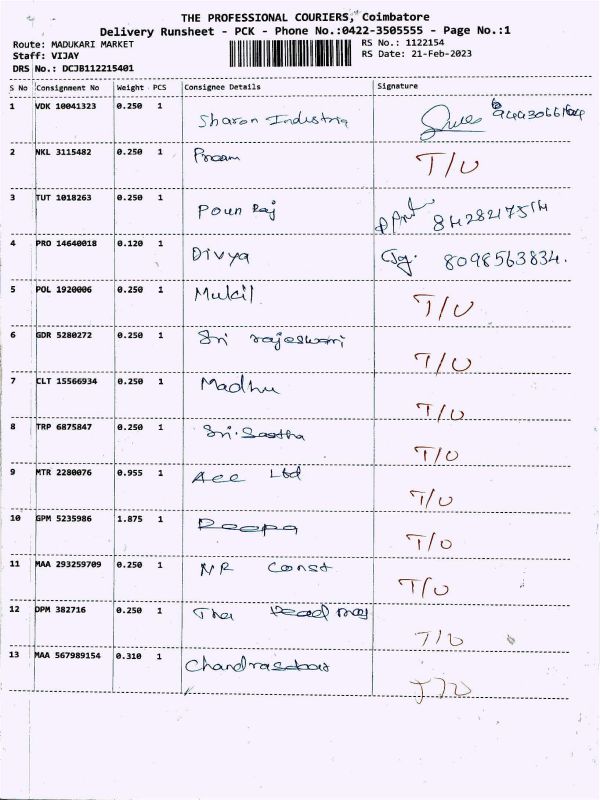 THE PROFESSIONAL COURIERS, Coimbatore
Delivery Runsheet - PCK - Phone No.:0422-3505555 - Page No.:1
Route: MADUKARI MARKET RS No.: 1122154
Staff: VIJAY RS Date: 21-Feb-2023
DRS No.: DCJB112215401
S No Consignment No Weight PCS Consignee Details Signature
1 VDK 10041323 0.250 1 Sharon Industria
2 NKL 3115482 0.250 1 T/U
3 TUT 1018263 0.250 1 Poun Raj 8428217514
4 PRO 14640018 0.120 1 Divya 8098563834.
5 POL 1920006 0.250 1 Mukil T/U
6 GDR 5280272 0.250 1 Sri rajeswari T/U
7 CLT 15566934 0.250 1 Madhu T/U
8 TRP 6875847 0.250 1 Sri. Sastha T/U
9 MTR 2280076 0.955 1 Ace Ltd T/U
10 GPM 5235986 1.875 1 Deepa T/U
11 MAA 293259709 0.250 1 NR Const T/U
12 DPM 382716 0.250 1 The T/U
13 MAA 567989154 0.310 1 T/U